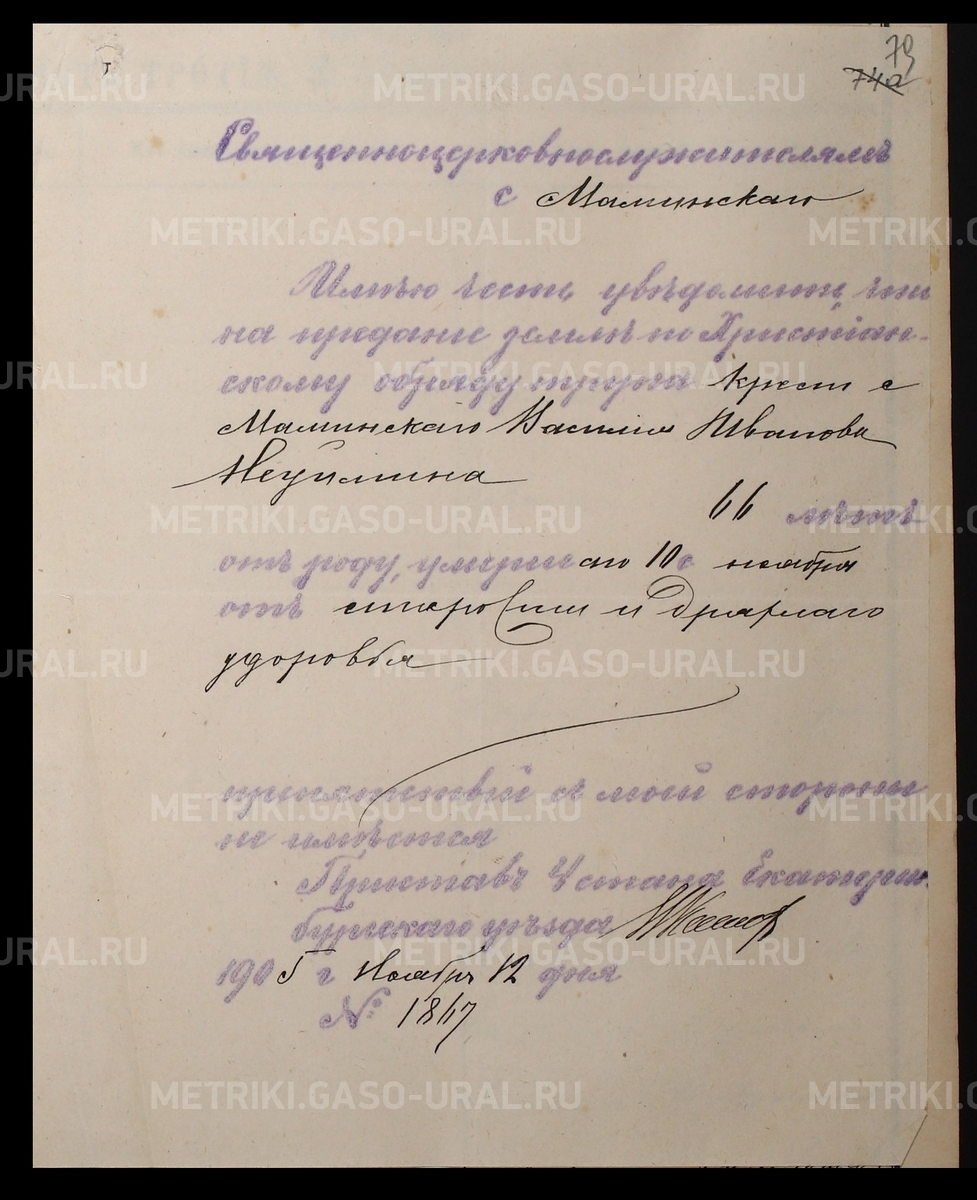 79
74а
Священноцерковнослужителямъ
с Маминскаго
Имѣю честь увѣдомить что
на преданіе землѣ по Христіан-
скому обряду трупа крест с
Маминскаго Василія Иванова
Неуймина
66 лѣтъ
отъ роду, умершаго 10 с ноября
отъ старости и дряхлаго
здоровья
препятствій съ моей стороны
не имѣется
Приставъ 4 стана Екатерин-
бургскаго уѣзда
1905 г Ноябрь 12 дня
№ 1867
METRIKI.GASO-URAL.RU